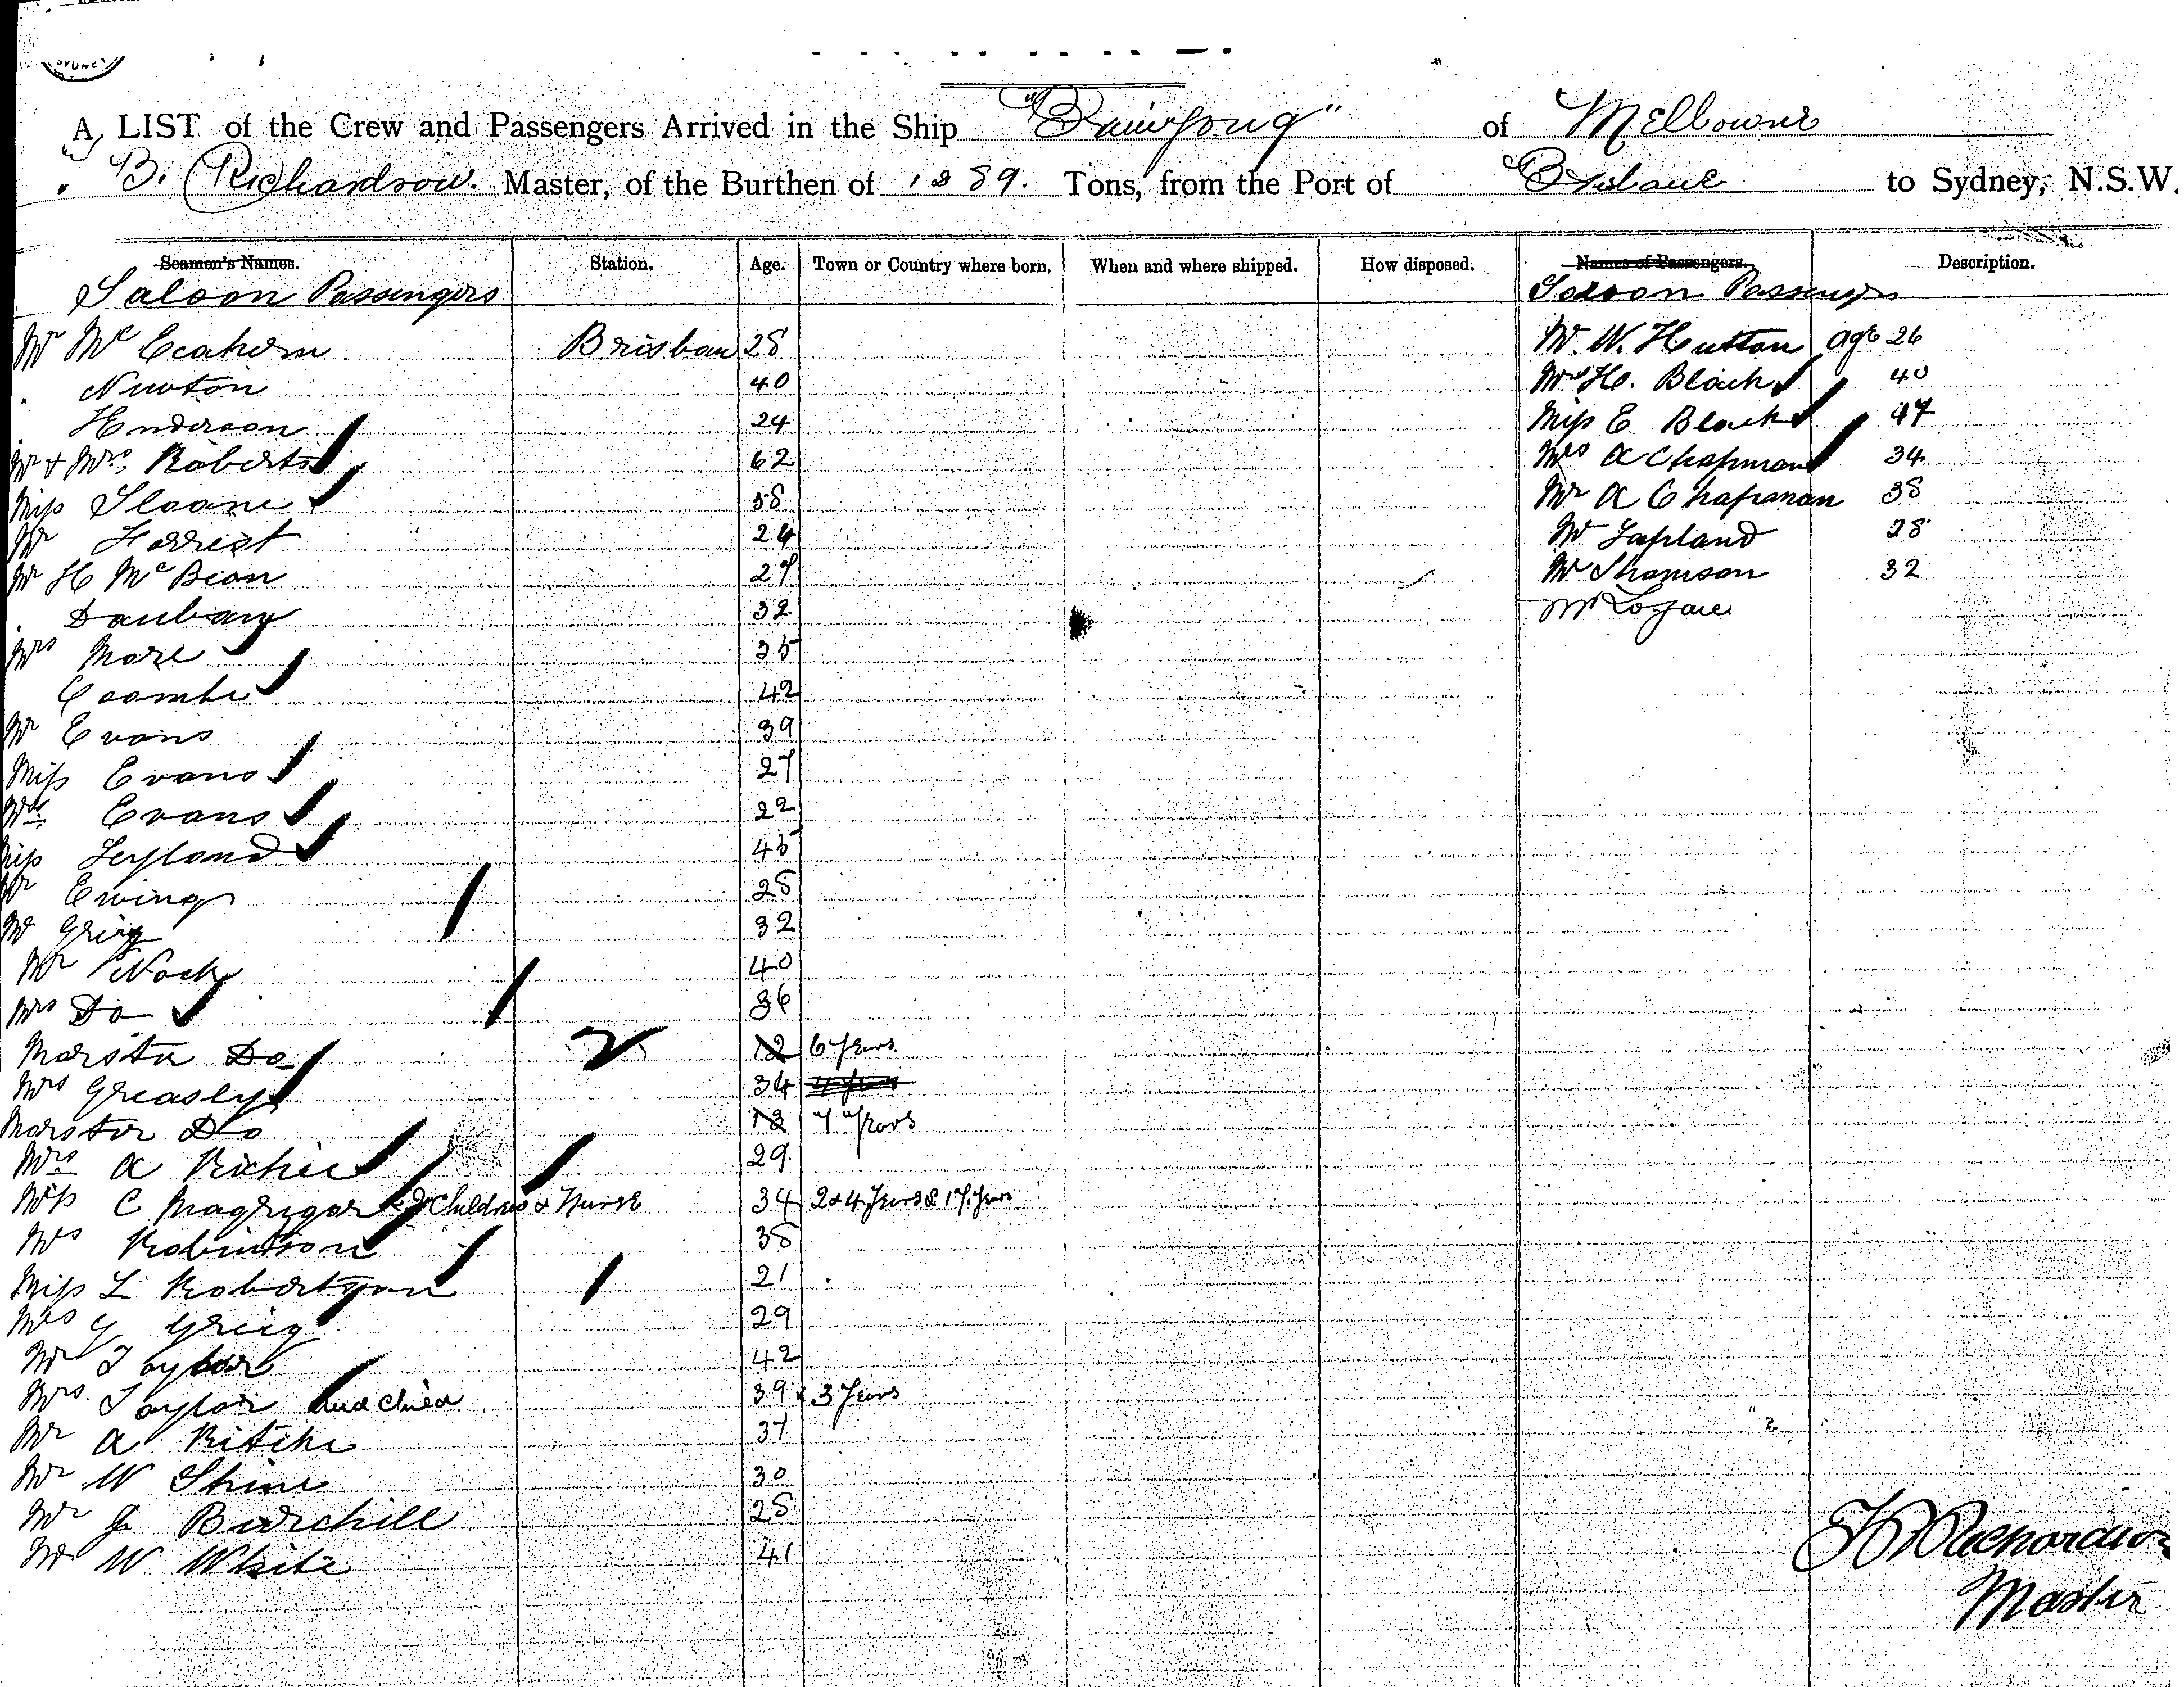 SYDNEY
A LIST of the Crew and Passengers Arrived in the Ship of Melbourne
B. Richardson. Master, of the Burthen of 1889. Tons, from the Port of Brisbane to Sydney, N.S.W.
Seamen's Names. Station. Age. Town or Country where born. When and where shipped. How disposed. Names of Passengers. Description.
Saloon Passengers Saloon Passengers
Mr Brisbane 28 Mr. W. Hutton age 26
Newton 40 Mrs H. Black 40
Henderson 24 Miss E Black 47
Mr & Mrs Roberts 62 Mrs A Chapman 34
Miss Sloane 58 Mr A Chapman 38
Mr Forrest 24 Mr Lapland 28
Mr H McBean 27 Mr Thomson 32
Daubany 32 Mr
Mrs More 35
Coombe 42
Mr Evans 39
Miss Evans 27
Mrs Evans 22
Miss Leyland 45
Mr Ewing 25
Mr Greig 32
Mr Nock 40
Mrs Do 36
Marster Do 12 6 years
Mrs Greasley 34 4 years
Marster Do 13 7 years
Mrs A Richie 29
C Magregor & 2 Children & Nurse 34 2 & 4 years & 17 years
Mrs Robinson 38
Miss L Robertson 21
Mrs G Greig 29
Mr Taylor 42
Mrs Taylor and child 39 & 3 years
Mr A Ritchi 37
Mr W Shine 30
Mr J Burchill 28
Mr W White 41
Richardson
Master